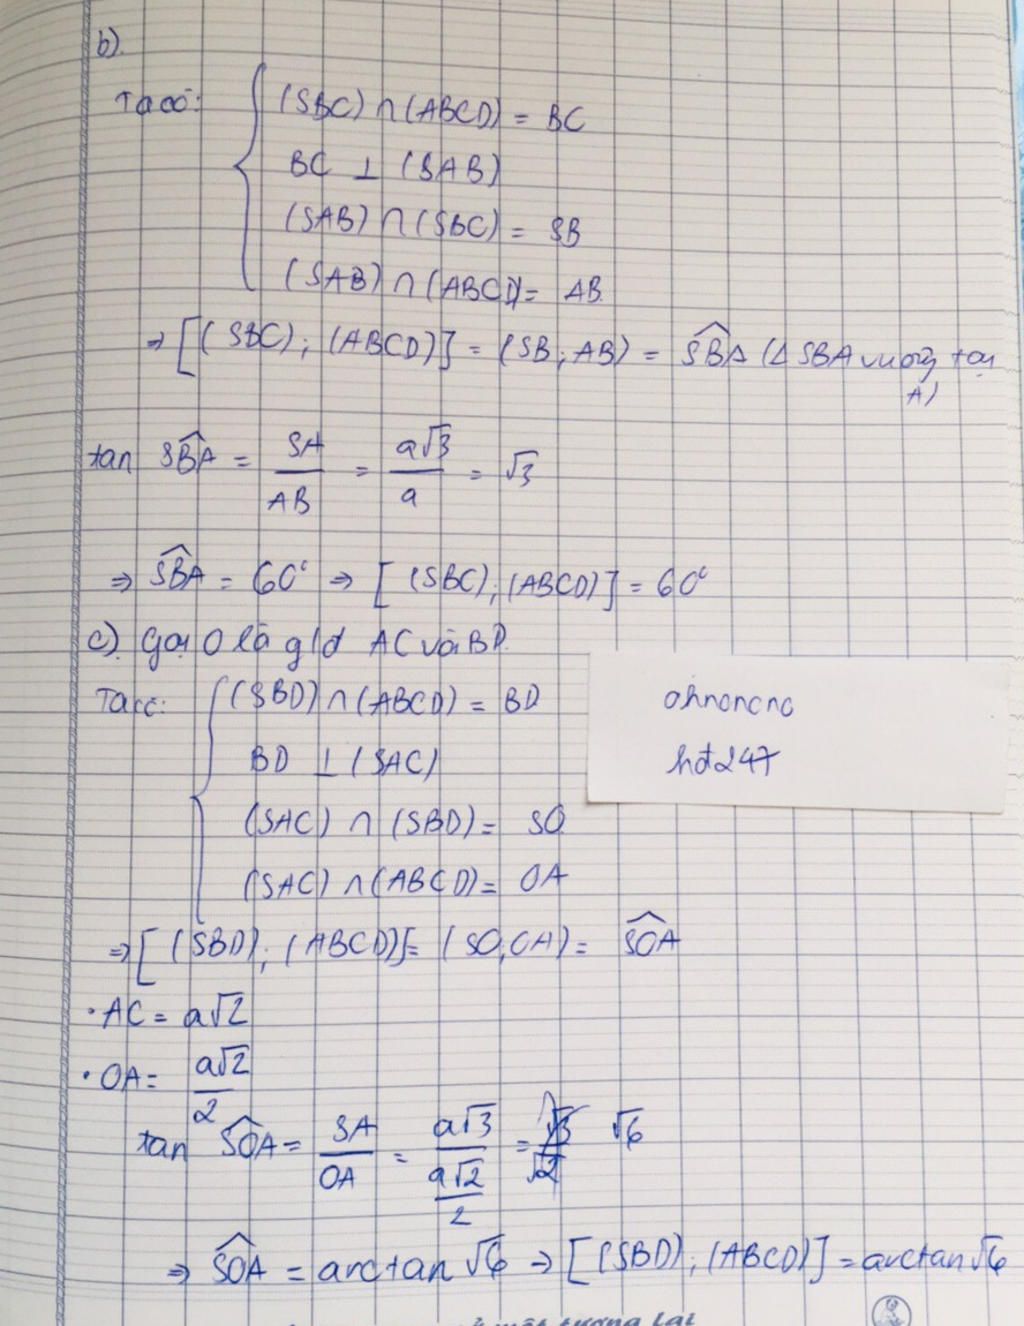 b).
Ta có: (SBC) ∩ (ABCD) = BC
BC ⊥ (SAB)
(SAB) ∩ (SBC) = SB
(SAB) ∩ (ABCD) = AB
⇒ [(SBC); (ABCD)] = (SB; AB) = \widehat{SBA} (Δ SBA vuông tại A)
tan \widehat{SBA} = SA/AB = a√3/a = √3
⇒ \widehat{SBA} = 60° ⇒ [(SBC); (ABCD)] = 60°
c). Gọi O là g/đ AC và BD.
Ta có: (SBD) ∩ (ABCD) = BD
BD ⊥ (SAC)
(SAC) ∩ (SBD) = SO
(SAC) ∩ (ABCD) = OA
⇒ [(SBD); (ABCD)] = (SO, OA) = \widehat{SOA}
ahncncnc
hđ247
• AC = a√2
• OA = a√2/2
tan \widehat{SOA} = SA/OA = a√3/(a√2/2) = √6
⇒ \widehat{SOA} = arctan √6 ⇒ [(SBD); (ABCD)] = arctan √6
tương lai